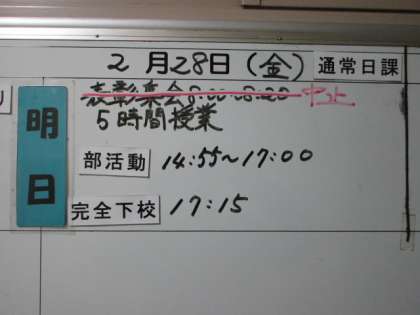 2月28日(金) 通常日課
明日
表彰集会8:00-08:20 中止
5時間授業
部活動 14:55~17:00
完全下校 17:15